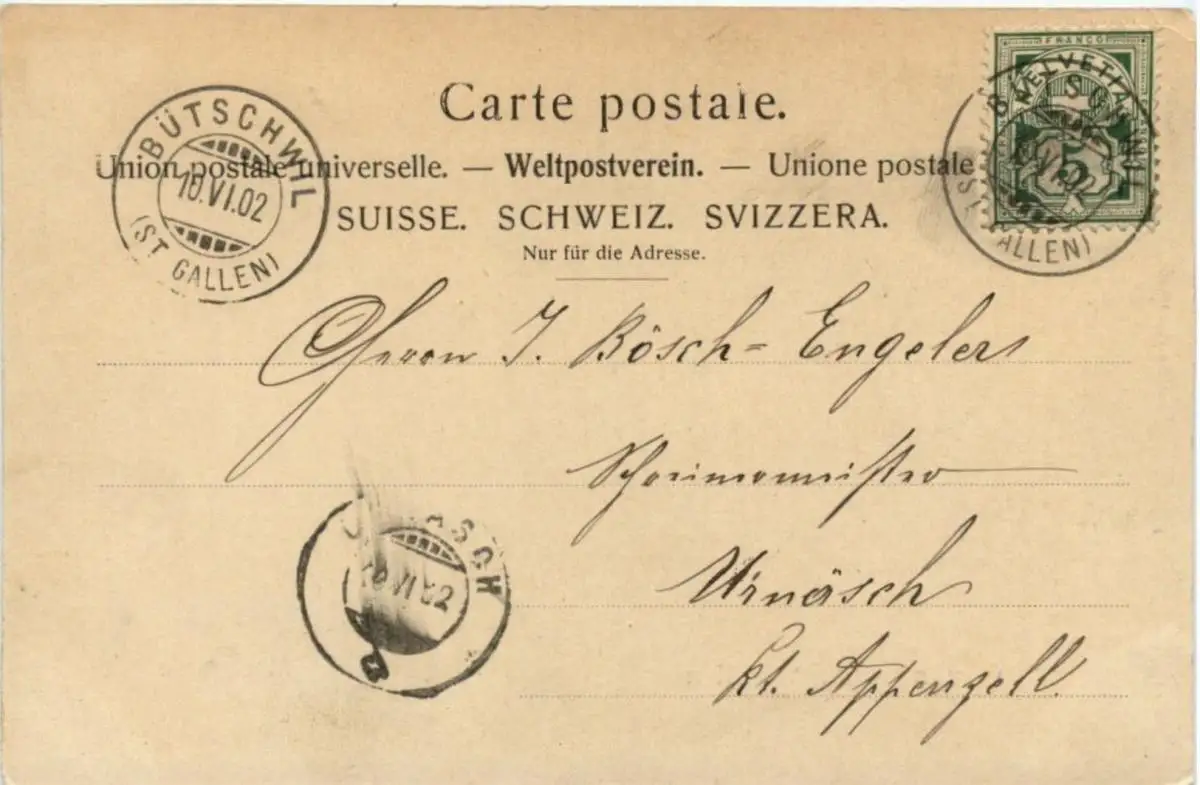 Carte postale.
Union postale universelle. — Weltpostverein. — Unione postale
SUISSE. SCHWEIZ. SVIZZERA.
Nur für die Adresse.
BÜTSCHWIL
10.VI.02
(ST GALLEN)
FRANCO
HELVETIA
5
VI.02
ALLEN)
Herrn J. Bösch-Engeler
Schreinermeister
Urnäsch
Kt. Appenzell.
ASCH
VI 02